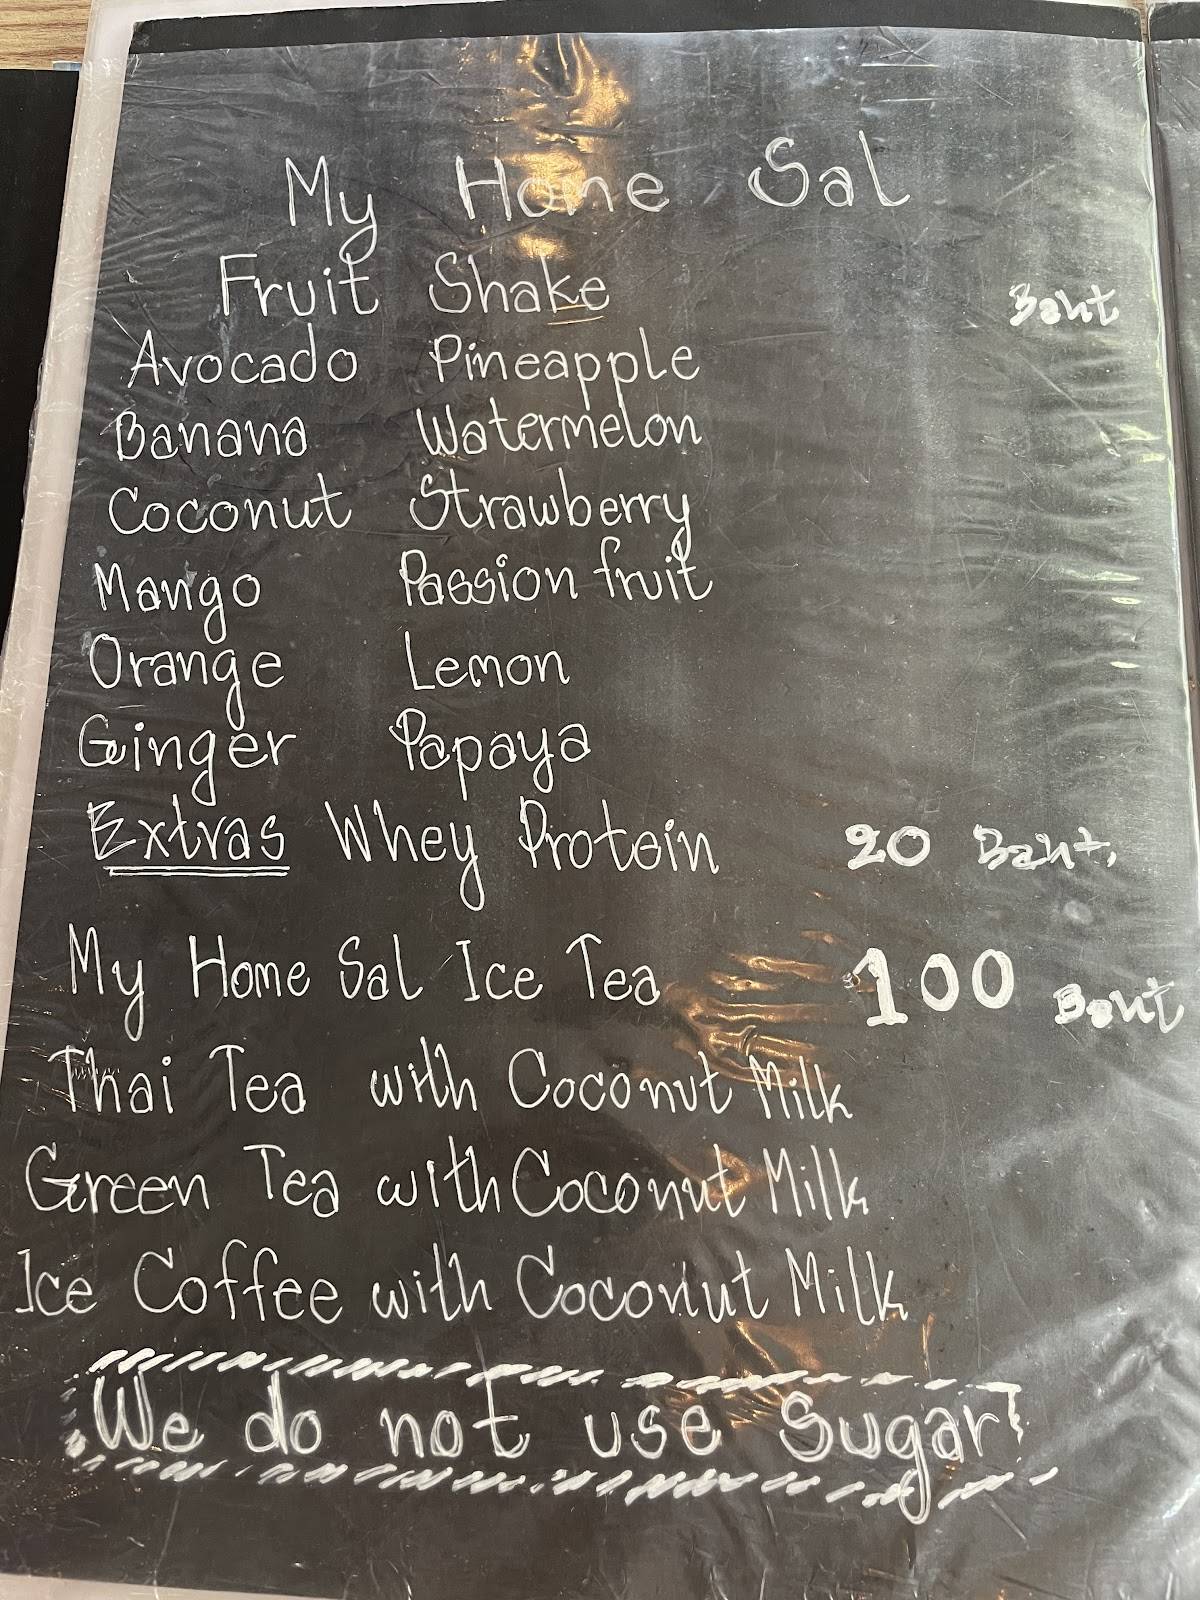 My Home Sal
Fruit Shake Baht
Avocado Pineapple
Banana Watermelon
Coconut Strawberry
Mango Passion fruit
Orange Lemon
Ginger Papaya
Extras Whey Protein 20 Baht.
My Home Sal Ice Tea 100 Baht
Thai Tea with Coconut Milk
Green Tea with Coconut Milk
Ice Coffee with Coconut Milk
We do not use Sugar!